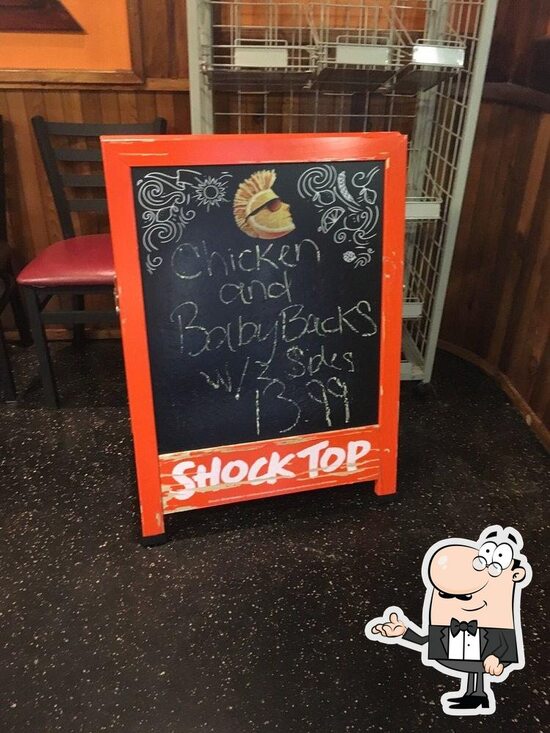 Chicken
and
Baby Backs
w/2 Sides
13.99
SHOCK TOP